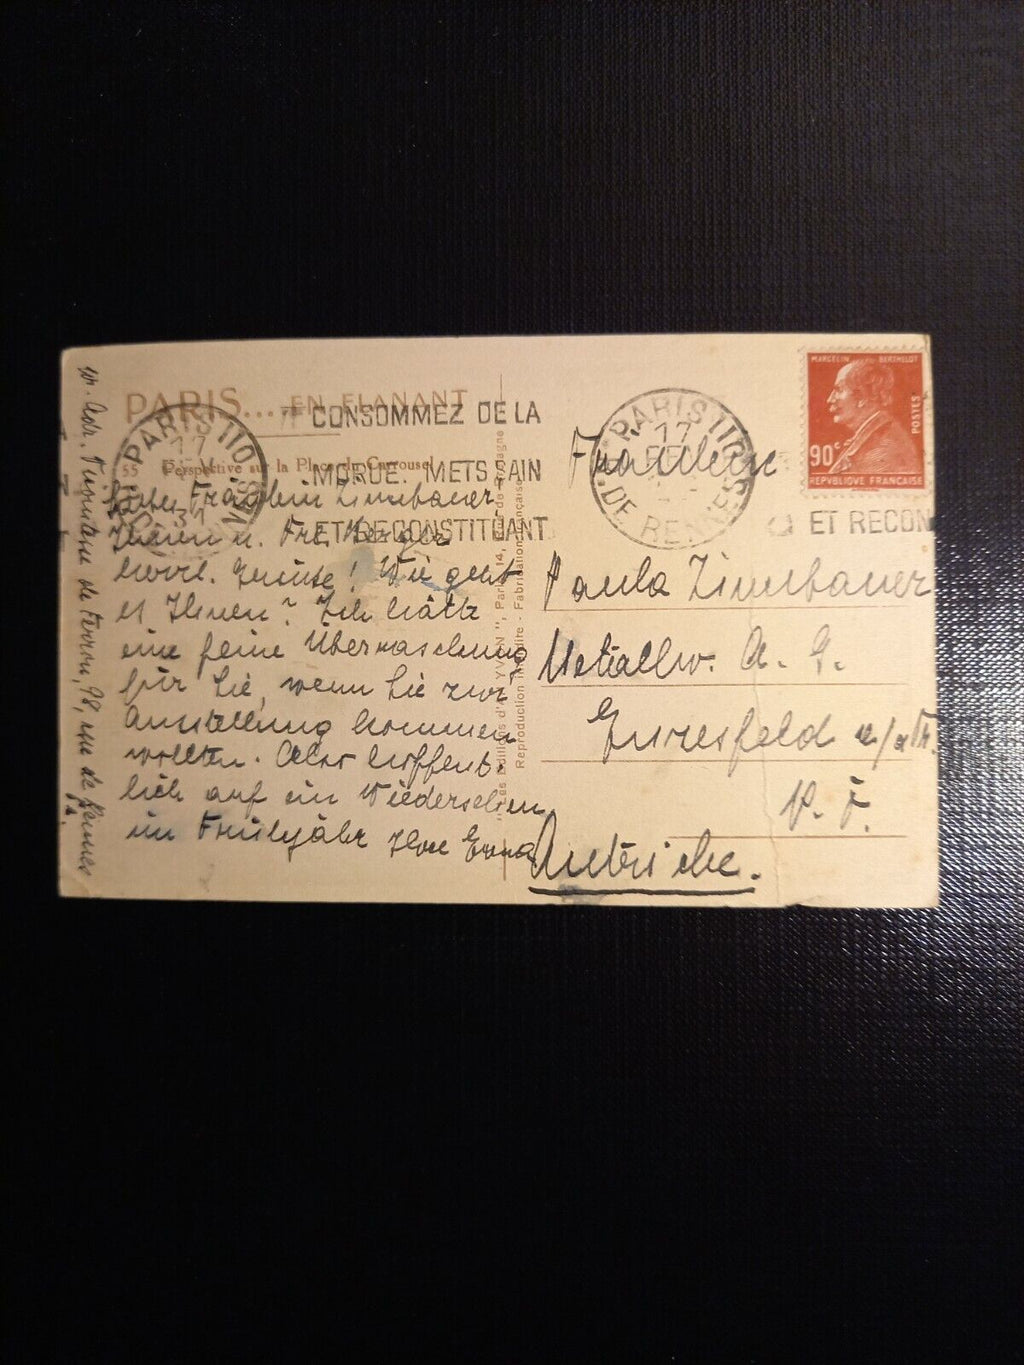 PARIS... EN FLANANT
55 Perspective sur la Place du Carrousel
Liebes Fräulein Zimbauer
Ihnen u. Frl.
herzl. Grüsse! Wie geht
es Ihnen? Ich hätte
eine feine Überraschung
für Sie, wenn Sie zur
Ausstellung kommen
wollten. Also hoffent-
lich auf ein Wiedersehen
im Frühjahr Ihre Erna
w. Adr. de Ferron, 98, rue de
PARIS 110
17
31
DE RENNES
CONSOMMEZ DE LA
MORUE. METS SAIN
ET RECONSTITUANT
"Les Editions d'Art YVON", Paris, 14, de Bretagne
Reproduction Interdite - Fabrication Française
PARIS 110
17
DE RENNES
ET RECON
MARCELIN BERTHELOT
POSTES
90c
REPVBLIQVE FRANÇAISE
Fräulein
Paula Zimbauer
Metallw. A. G.
Enzesfeld a/d Tr.
N. Ö.
Autriche.